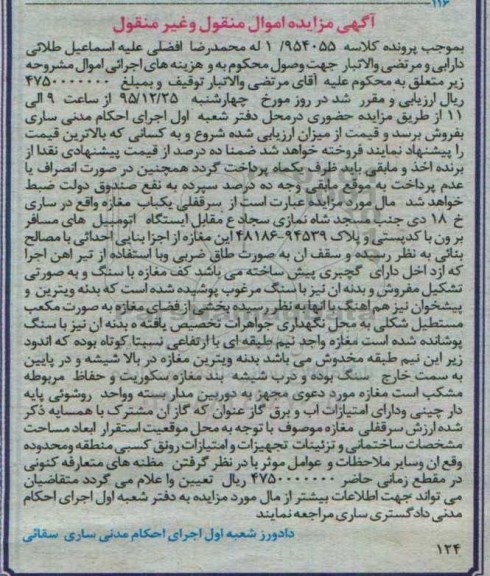 ۱۱۶
آگهی مزایده اموال منقول وغیر منقول
بموجب پرونده کلاسه ۹۵۴۰۵۵/ ۱ له محمدرضا افضلی علیه اسماعیل طلائی
دارابی و مرتضی والاتبار جهت وصول محکوم به و هزینه های اجرائی اموال مشروحه
زیر متعلق به محکوم علیه آقای مرتضی والاتبار توقیف و بمبلغ ۴۷۵۰۰۰۰۰۰۰
ریال ارزیابی و مقرر شد در روز مورخ چهارشنبه ۹۵/۱۲/۲۵ از ساعت ۹ الی
۱۱ از طریق مزایده حضوری درمحل دفتر شعبه اول اجرای احکام مدنی ساری
بفروش برسد و قیمت از میزان ارزیابی شده شروع و به کسانی که بالاترین قیمت
را پیشنهاد نمایند فروخته خواهد شد ضمنا ده درصد از قیمت پیشنهادی نقدا از
برنده اخذ و مابقی باید ظرف یکماه پرداخت گردد همچنین در صورت انصراف یا
عدم پرداخت به موقع مابقی وجه ده درصد سپرده به نفع صندوق دولت ضبط
خواهد شد مال مورد مزایده عبارت است از سرقفلی یکباب مغازه واقع در ساری
خ ۱۸ دی جنب مسجد شاه نمازی سجاد ع مقابل ایستگاه اتومبیل های مسافر
بر ون با کدپستی و پلاک ۹۴۵۳۹-۴۸۱۸۶ این مغازه از اجزا بنایی احداثی با مصالح
بنائی به نظر رسیده و سقف ان به صورت طاق ضربی وبا استفاده از تیر اهن اجرا
که ازد اخل دارای گچبری پیش ساخته می باشد کف مغازه با سنگ و به صورتی
تشکیل مفروش و بدنه ان نیز با سنگ مرغوب پوشیده شده است که بدنه ویترین و
پیشخوان نیز هم اهنگ با انها به نظر رسیده بخشی از فضای مغازه به صورت مکعب
مستطیل شکلی به محل نگهداری جواهرات تخصیص یافته ه بدنه ان نیز با سنگ
پوشانده شده است مغازه واجد نیم طبقه ای با ارتفاعی نسیتا کوتاه بوده که اندود
زیر این نیم طبقه مخدوش می باشد بدنه ویترین مغازه در بالا شیشه و در پایین
به سمت خارج سنگ بوده و درب شیشه بند مغازه سکوریت و حفاظ مربوطه
مشکب است مغازه مورد دعوی مجهز به دوربین مدار بسته وواحد روشوئی پایه
دار چینی ودارای امتیازات اب و برق گاز عنوان که گاز ان مشترک با همسایه ذکر
شده ارزش سرقفلی مغازه موصوف با توجه به محل موقعیت استقرار ابعاد مساحت
مشخصات ساختمانی و تزئینات تجهیزات و امتیازات رونق کسبی منطقه ومحدوده
وقع ان وسایر ملاحظات و عوامل موثر یا در نظر گرفتن مظنه های متعارفه کنونی
در مقطع زمانی حاضر ۴۷۵۰۰۰۰۰۰۰ ریال تعیین وا علام می گردد متقاضیان
می تواند جهت اطلاعات بیشتر از مال مورد مزایده به دفتر شعبه اول اجرای احکام
مدنی دادگستری ساری مراجعه نمایند
دادورز شعبه اول اجرای احکام مدنی ساری سقائی
۱۲۴